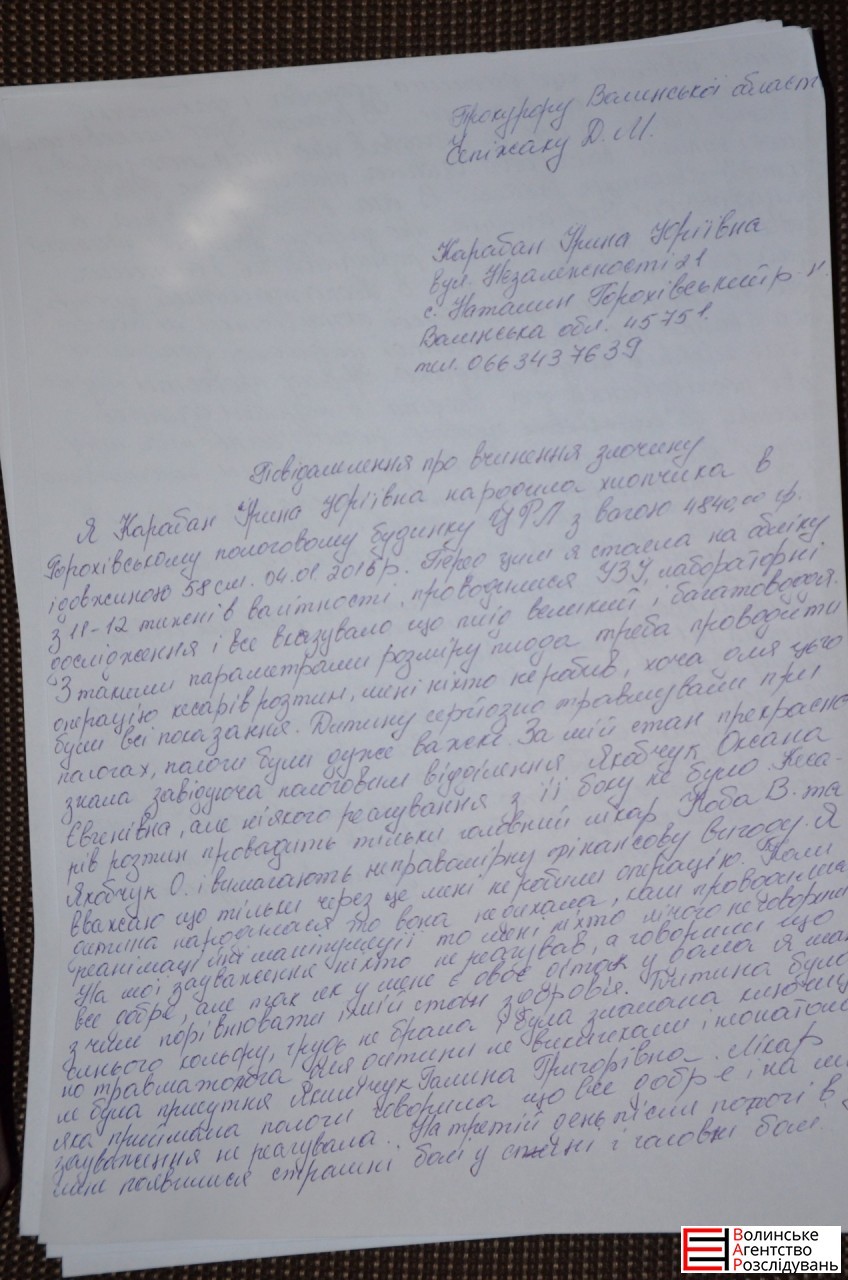 Прокурору Волинської област
Єспіжаку Д. М.
Карабан Ірина Юріївна
вул. Незалежності 21
с. Наталин Горохівський р-н.
Волинська обл. 45751.
тел. 0663437639
Повідомлення про вчинення злочину
Я Карабан Ірина Юріївна народила хлопчика в
Горохівському пологовому будинку ЦРЛ з вагою 4840,00 гр.
і довжиною 58 см. 04.01.2016 р. Перед цим я стояла на обліку
з 11-12 тижнів вагітності, проводилися УЗУ, лабораторні
дослідження і все вказувало що плід великий і багатоводдя.
З такими параметрами розміру плода треба проводити
операцію кесарів розтин, мені ніхто не робив, хоча для цього
були всі показання. Дитину серйозно травмували при
пологах, пологи були дуже важкі. За мій стан прекрасно
знала завідуюча пологовим відділення Якобчук Оксана
Євгенівна, але ніякого реагування з її боку не було. Кеса-
рів розтин проводить тільки головний лікар Коба В. та
Якобчук О. і вимагають неправомірну фінансову вигоду. Я
вважаю що тільки через це мені не робили операцію. Коли
дитина народилася то вона не дихала, коли проводили
реанімаційні маніпуляції то мені ніхто нічого не говорив
На мої зауваження ніхто не реагував, а говорили що
все добре, але так як у мене є двоє діток у дома я мала
з чим порівнювати і мій стан здоров'я. Дитина була
синього кольору, грудь не брала і була зламана ключиця
но травматолога для дитини не викликали і неонатолог
не була присутня Якимчук Галина Григорівна. Лікар
яка приймала пологи говорила що все добре і на мої
зауваження не реагувала. На третій день після пологі в
мене появилися страшні болі у спині і головні болі.
Волинське
Агентство
Розслідувань